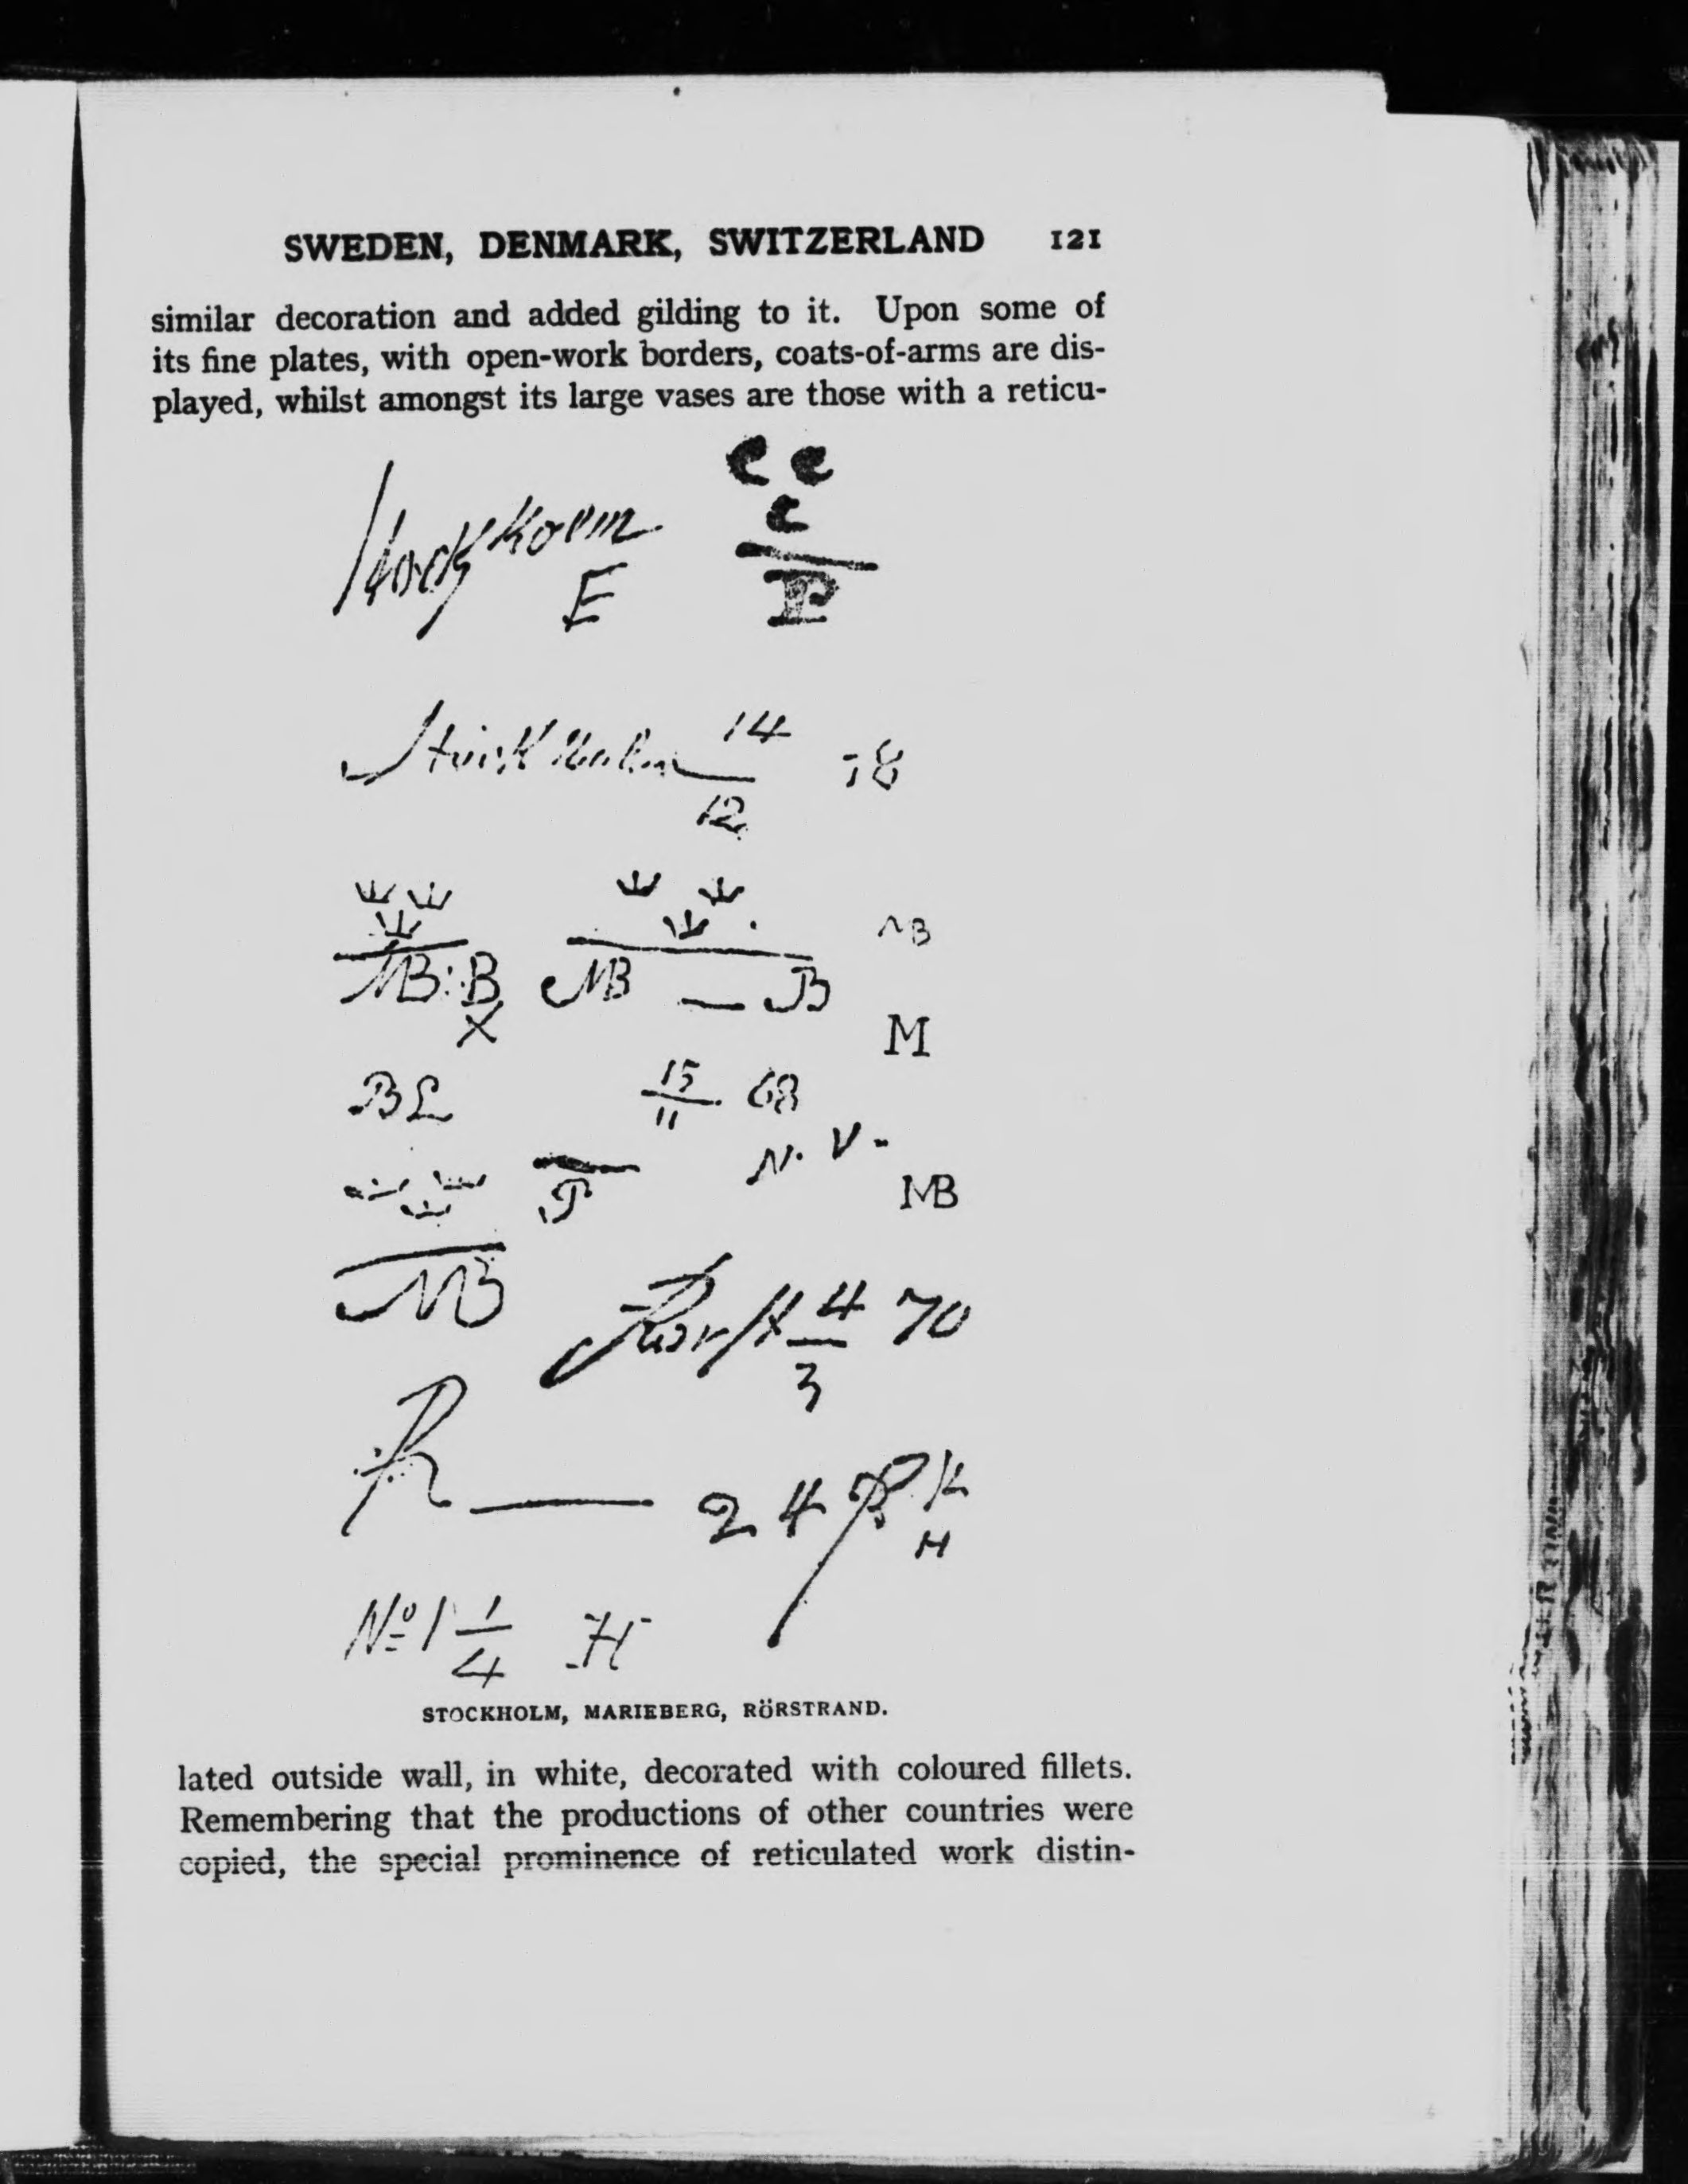 SWEDEN, DENMARK, SWITZERLAND 121
similar decoration and added gilding to it. Upon some of
its fine plates, with open-work borders, coats-of-arms are dis-
played, whilst amongst its large vases are those with a reticu-
E
P
14
12
MB
MB:B MB — B
X
M
BL 15 68
11
N. V-
P
MB
MB
4 70
3
R — 24
H
Nº 1 1 H
4
STOCKHOLM, MARIEBERG, RÖRSTRAND.
lated outside wall, in white, decorated with coloured fillets.
Remembering that the productions of other countries were
copied, the special prominence of reticulated work distin-